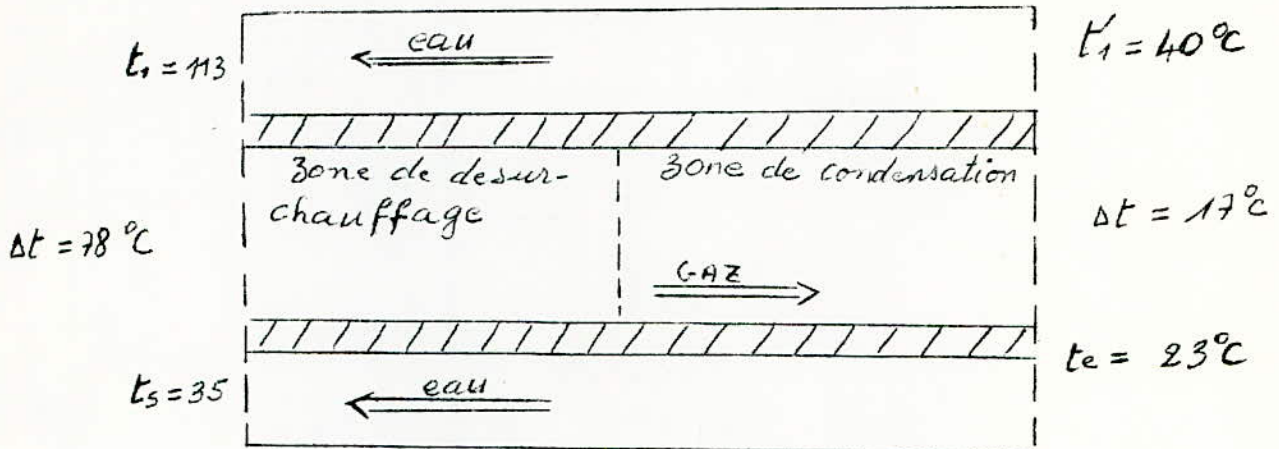 eau
t₁ = 113
t'₁ = 40°C
zone de desur-
chauffage
zone de condensation
Δt = 78°C
Δt = 17°C
GAZ
te = 23°C
ts = 35
eau